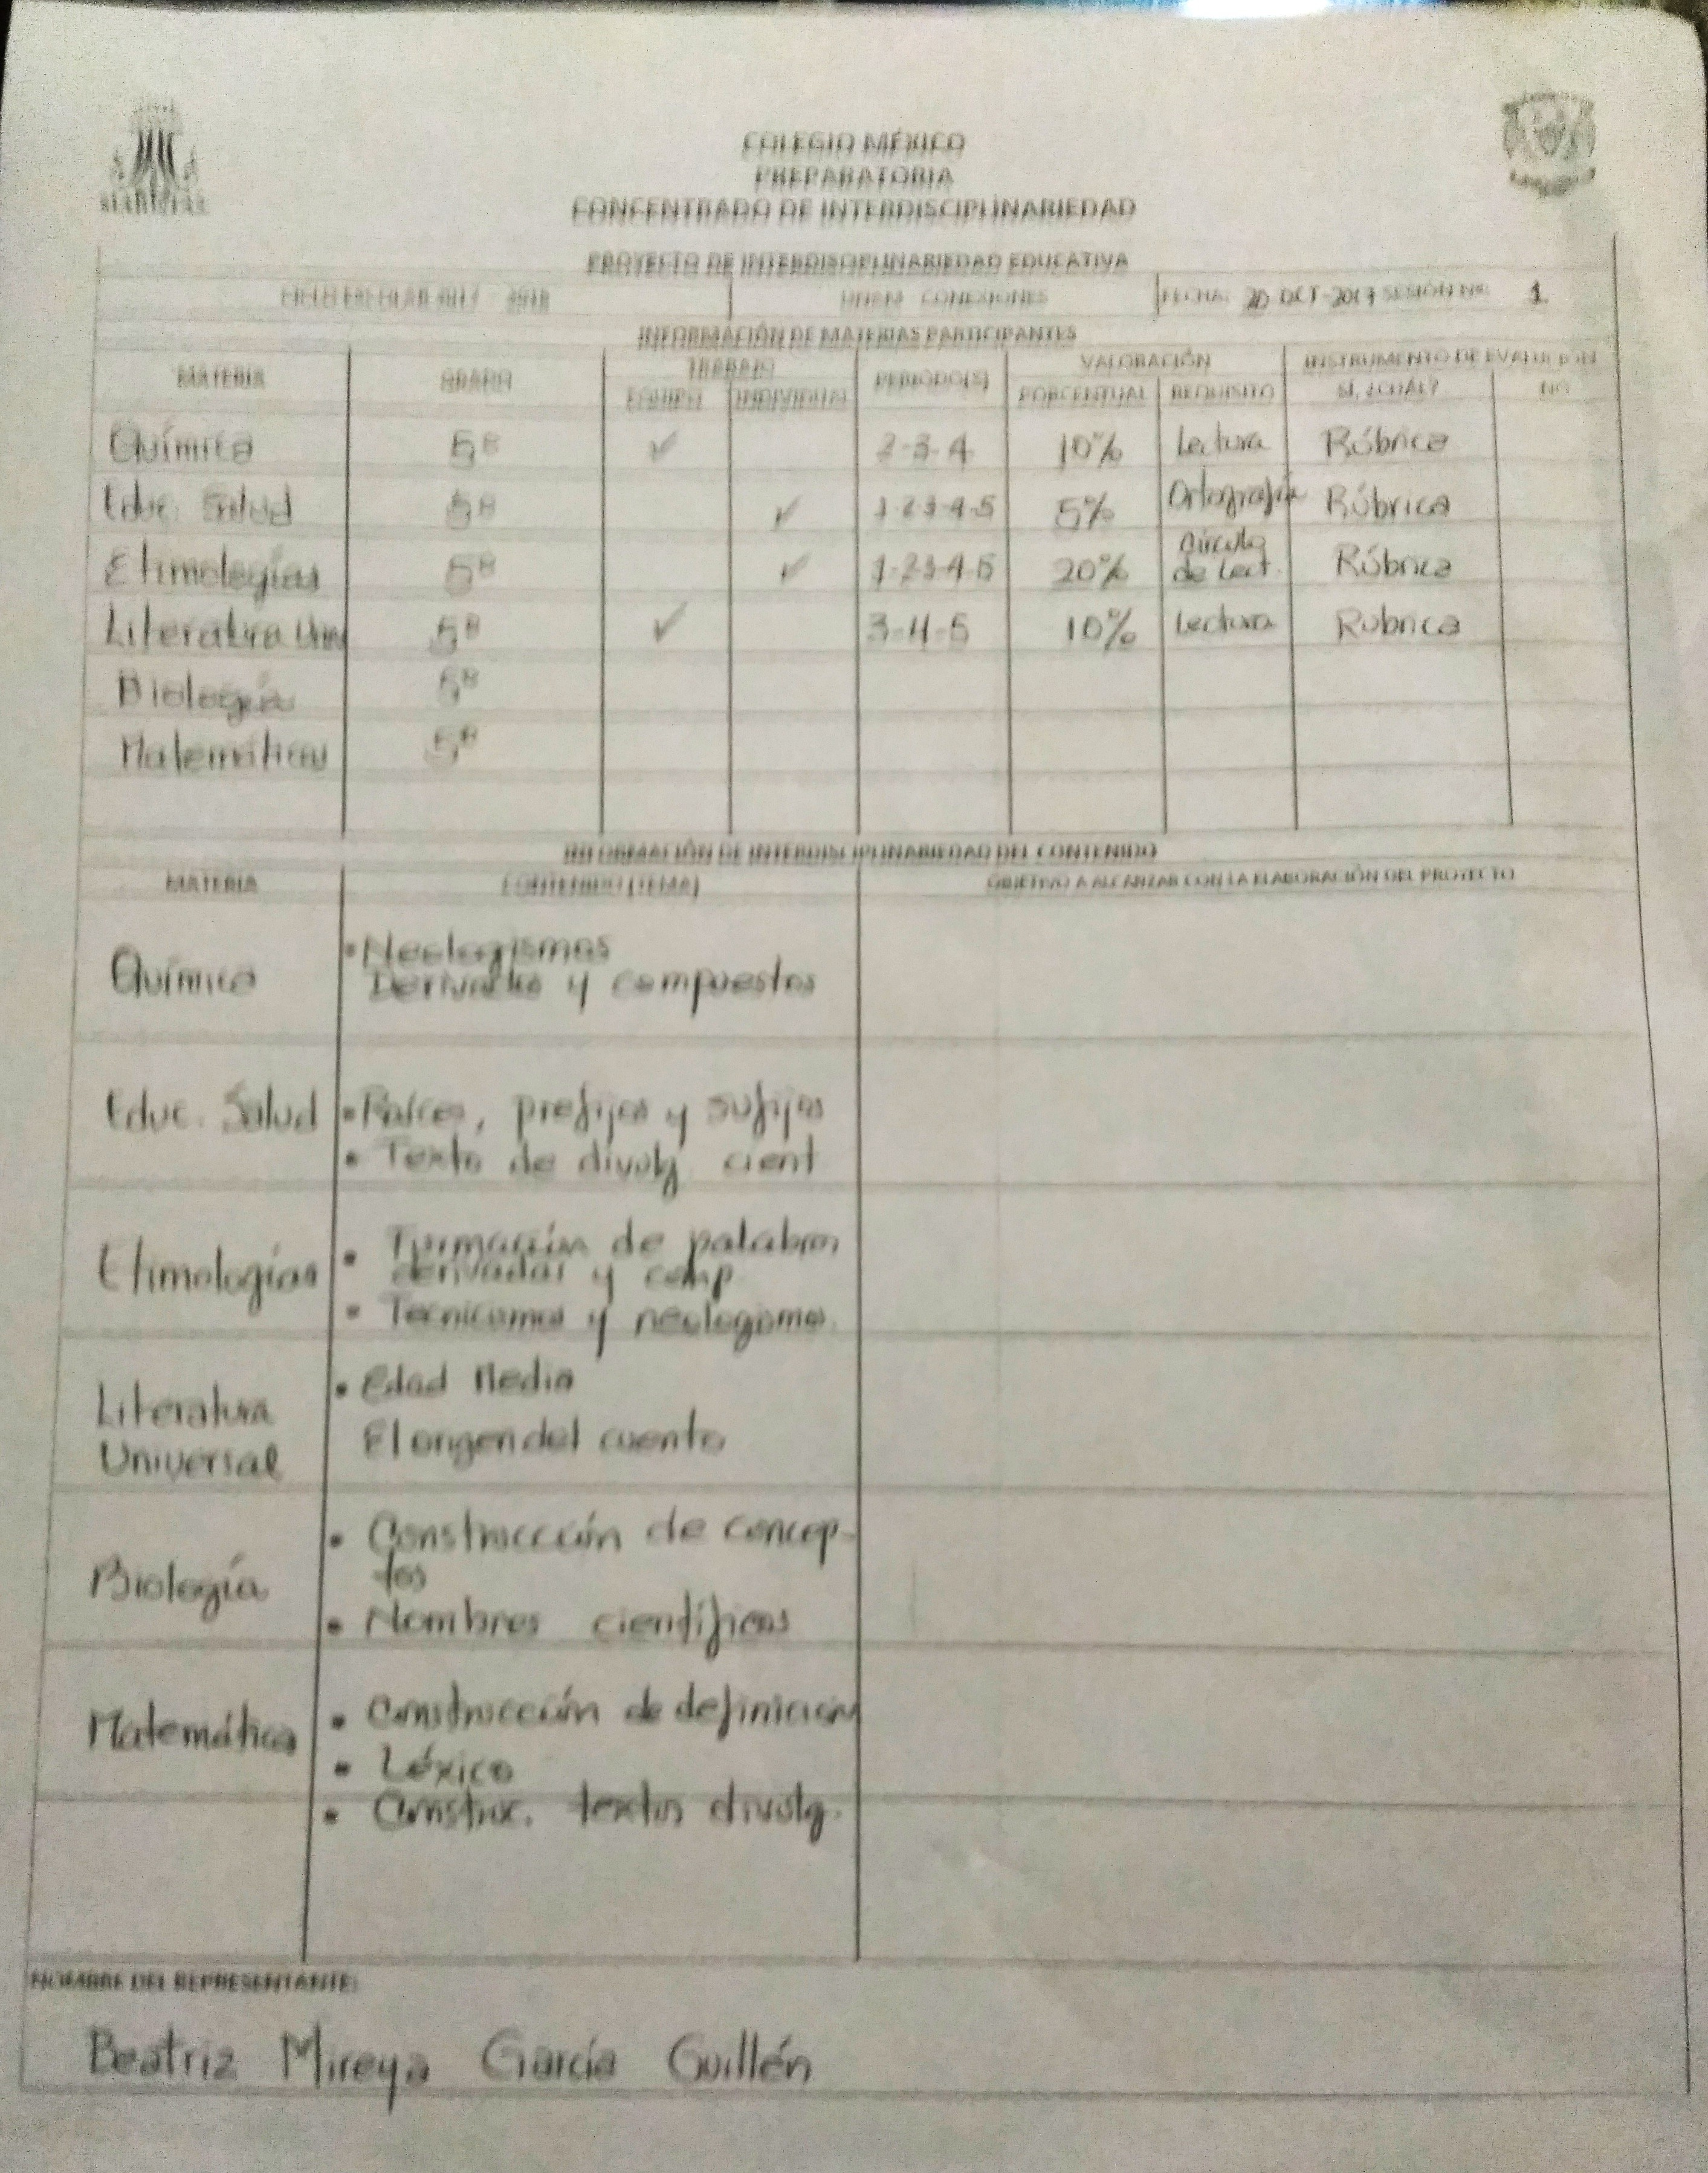 MARISTAS
COLEGIO MÉXICO
PREPARATORIA
CONCENTRADO DE INTERDISCIPLINARIEDAD
PROYECTO DE INTERDISCIPLINARIEDAD EDUCATIVA
CICLO ESCOLAR 2017 - 2018 UNAM CONEXIONES FECHA: 20 OCT-2017 SESIÓN Nº: 1
INFORMACIÓN DE MATERIAS PARTICIPANTES
MATERIA GRADO TRABAJO PERIODO(S) VALORACIÓN INSTRUMENTO DE EVALUACIÓN
EQUIPO INDIVIDUAL PORCENTUAL REQUISITO SÍ, ¿CUÁL? NO
Química 5º ✓ 2-3-4 10% Lectura Rúbrica
Educ. Salud 5º ✓ 1-2-3-4-5 5% Ortografía Rúbrica
Etimologías 5º ✓ 1-2-3-4-5 20% Círculo de Lect. Rúbrica
Literatura Univ 5º ✓ 3-4-5 10% Lectura Rúbrica
Biología 5º
Matemáticas 5º
INFORMACIÓN DE INTERDISCIPLINARIEDAD DEL CONTENIDO
MATERIA CONTENIDO (TEMA) OBJETIVO A ALCANZAR CON LA ELABORACIÓN DEL PROYECTO
Química • Neologismos
Derivados y compuestos
Educ. Salud • Raíces, prefijos y sufijos
• Texto de divulg. cient
Etimologías • Formación de palabras
derivadas y comp
• Tecnicismos y neologismos
Literatura Universal • Edad Media
El origen del cuento
Biología • Construcción de concep-
tos
• Nombres científicos
Matemáticas • Construcción de definición
• Léxico
• Construc. textos divulg.
NOMBRE DEL REPRESENTANTE:
Beatriz Mireya García Guillén